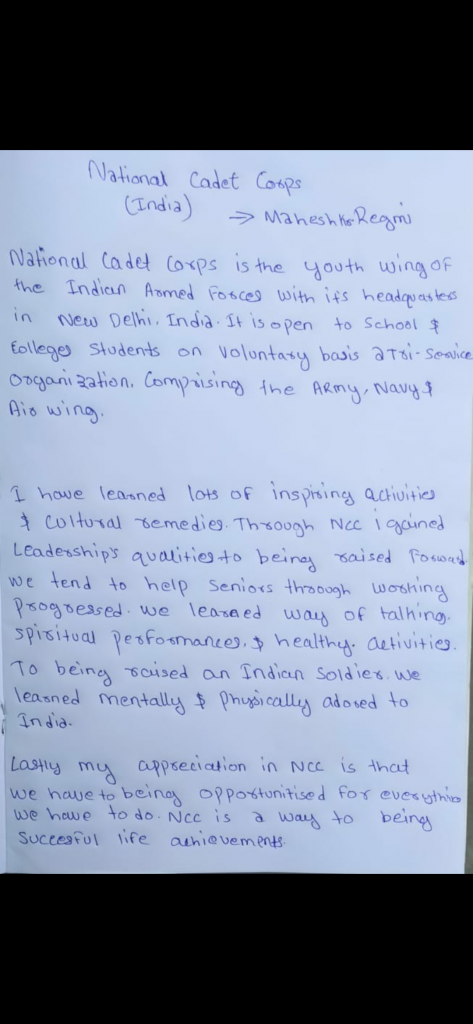 National Cadet Corps
(India) → Mahesh Kr. Regmi
National Cadet Corps is the youth wing of
the Indian Armed Forces with its headquarters
in New Delhi, India. It is open to School &
Colleges Students on voluntary basis a Tri-Service
Organization, Comprising the Army, Navy &
Air wing.
I have learned lots of inspiring activities
& cultural remedies. Through Ncc i gained
Leadership's qualities to being raised forward.
we tend to help Seniors through working
Progressed. we learned way of talking.
Spiritual Performances, & healthy. activities.
To being raised an Indian Soldier. we
learned mentally & Physically adored to
India.
Lastly my appreciation in Ncc is that
we have to being opportunitised for everything
we have to do. NCC is a way to being
Succesful life achievements.